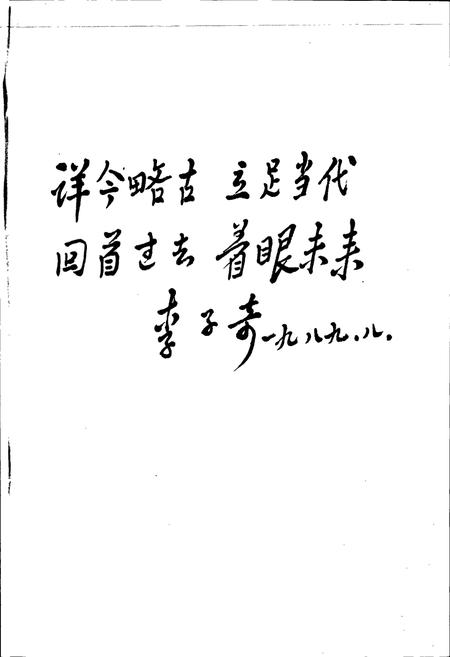 详今略古 立足当代
回首过去 着眼未来
李子奇 一九八九.八.